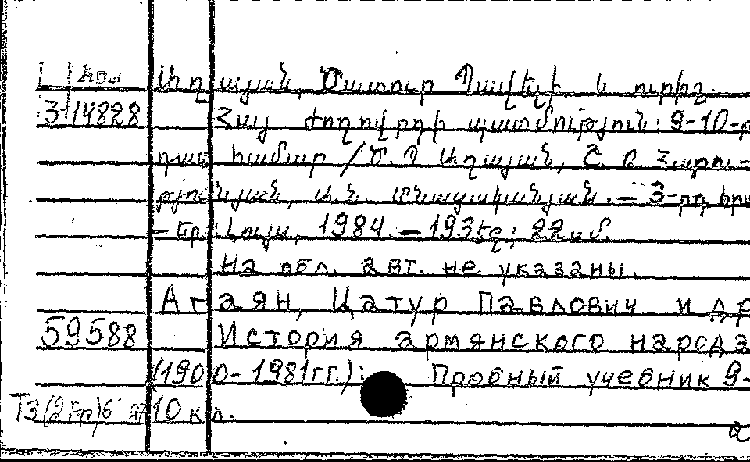 Աղայան, Ծատուր Պավելի և ուրիշ.
3-14828 Հայ ժողովրդի պատմություն: 9-10-րդ
դաս համար / Ծ. Պ. Աղայան, Շ. Ռ. Հարու-
թյունյան, Ա. Ն. Մնացականյան. — 3-րդ հրա
— Եր.: Լույս, 1984. — 193 էջ; 22 սմ.
На обл. авт. не указаны.
Агаян, Цатур Павлович и др
59588 История армянского народа
(1900-1981гг.): Пробный учебник 9-
10 кл.